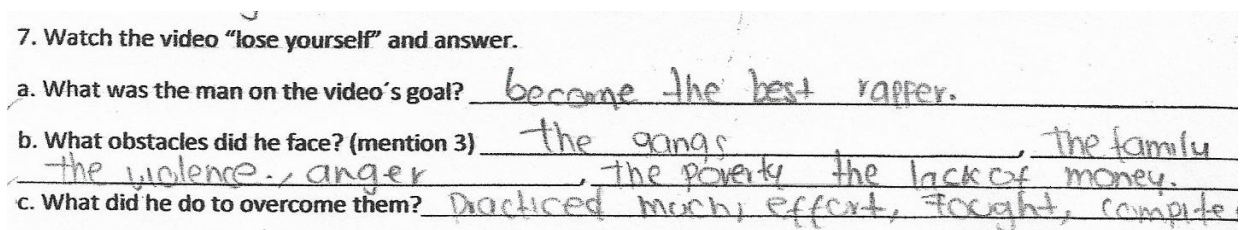 7. Watch the video “lose yourself” and answer.
a. What was the man on the video´s goal? become the best rapper.
b. What obstacles did he face? (mention 3) the gangs, the family
the violence., anger, the poverty the lack of money.
c. What did he do to overcome them? Practiced much, effort, fought, compite